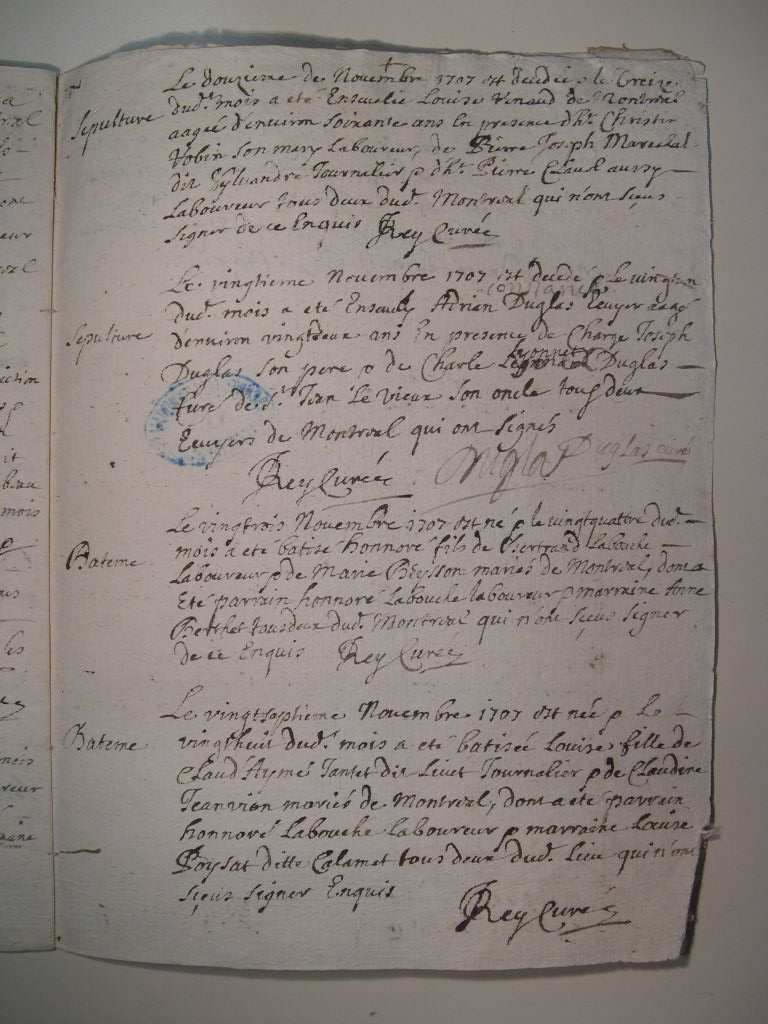 Sepulture
Le douzieme de Novembre 1707 est decedée & le treize
dud.t mois a été Ensevelie Louise Venaud de Montreal
aagée d'environ soixante ans En presence d'h.t Christin
Vobin son mary Laboureur, de Pierre Joseph Marechal
dit Sylvandre Journalier & d'h.t Pierre Claud aussy
Laboureur tous deux dud.t Montreal qui n'ont sçeus
signer de ce Enquis Rey Curée
Sepulture
Le vingtieme Novembre 1707 est decedé & le vingtun
dud.t mois a eté Ensevely Adrian Duglas Ecuyer aagé
d'environ vingtdeux ans En presence de Charge Joseph
Duglas son pere & de Charle Lyonnet Duglas
Curé de S.t Jean le Vieux son oncle tous deux
Ecuyers de Montreal qui ont signés
Rey Curée Duglas Duglas curé
Bateme
Le vingtrois Novembre 1707 est né & le vingtquattre dud.t
mois a eté batisé honnoré fils de Bertrand Labouche
Laboureur & de Marie Beysson mariés de Montreal, dont a
Eté parrain honnoré Labouche laboureur & marraine Anne
Berthet tous deux dud.t Montreal qui n'ont sçeus signer
de ce Enquis Rey Curée
Bateme
Le vingtseptieme Novembre 1707 est née & le
vingthuit dud.t mois a eté batisée Louise fille de
Claud Aymé Tantet dit Livet Journalier & de Claudine
Jeanvion mariés de Montreal, dont a eté parrain
honnoré Labouche laboureur & marraine Louise
Poysat ditte Calamet tous deux dud.t Lieu qui n'ont
sçeus signer Enquis
Rey Curée